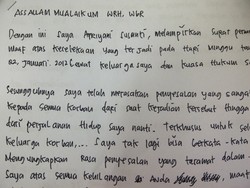 ASSALAM MUALAIKUM WRH, WBR
Dengan ini Saya Apriyani Susanti, melampirkan Surat permo
maaf atas kecelakaan yang terjadi pada tapi minggu tan
02. Januari. 2012 lawat keluarga saya dan kuasa Hukum Sa
Sesungguhnya saya telah merasakan penyesalan yang sanga
kepada semua korban dari saat kejadian tersebut hingga
dari perjalanan hidup saya nanti. Terkhusus untuk sel
keluarga korban... Saya tak lagi bisa berkata-kata
Mengungkapkan Rasa penyesalan yang teramat dalam
Saya atas semua kehilangan Anda